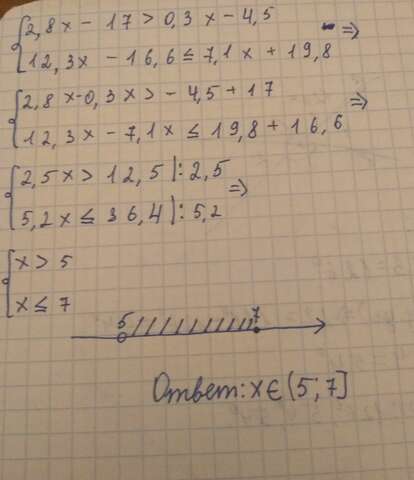 {2,8x - 17 > 0,3x - 4,5
{12,3x - 16,6 ≤ 7,1x + 19,8 =>
{2,8x-0,3x > - 4,5 + 17
{12,3x - 7,1x ≤ 19,8 + 16,6 =>
{2,5x > 12,5 |: 2,5
{5,2x ≤ 36,4 |: 5,2 =>
{x > 5
{x ≤ 7
5 7
Ответ: x ∈ (5; 7]